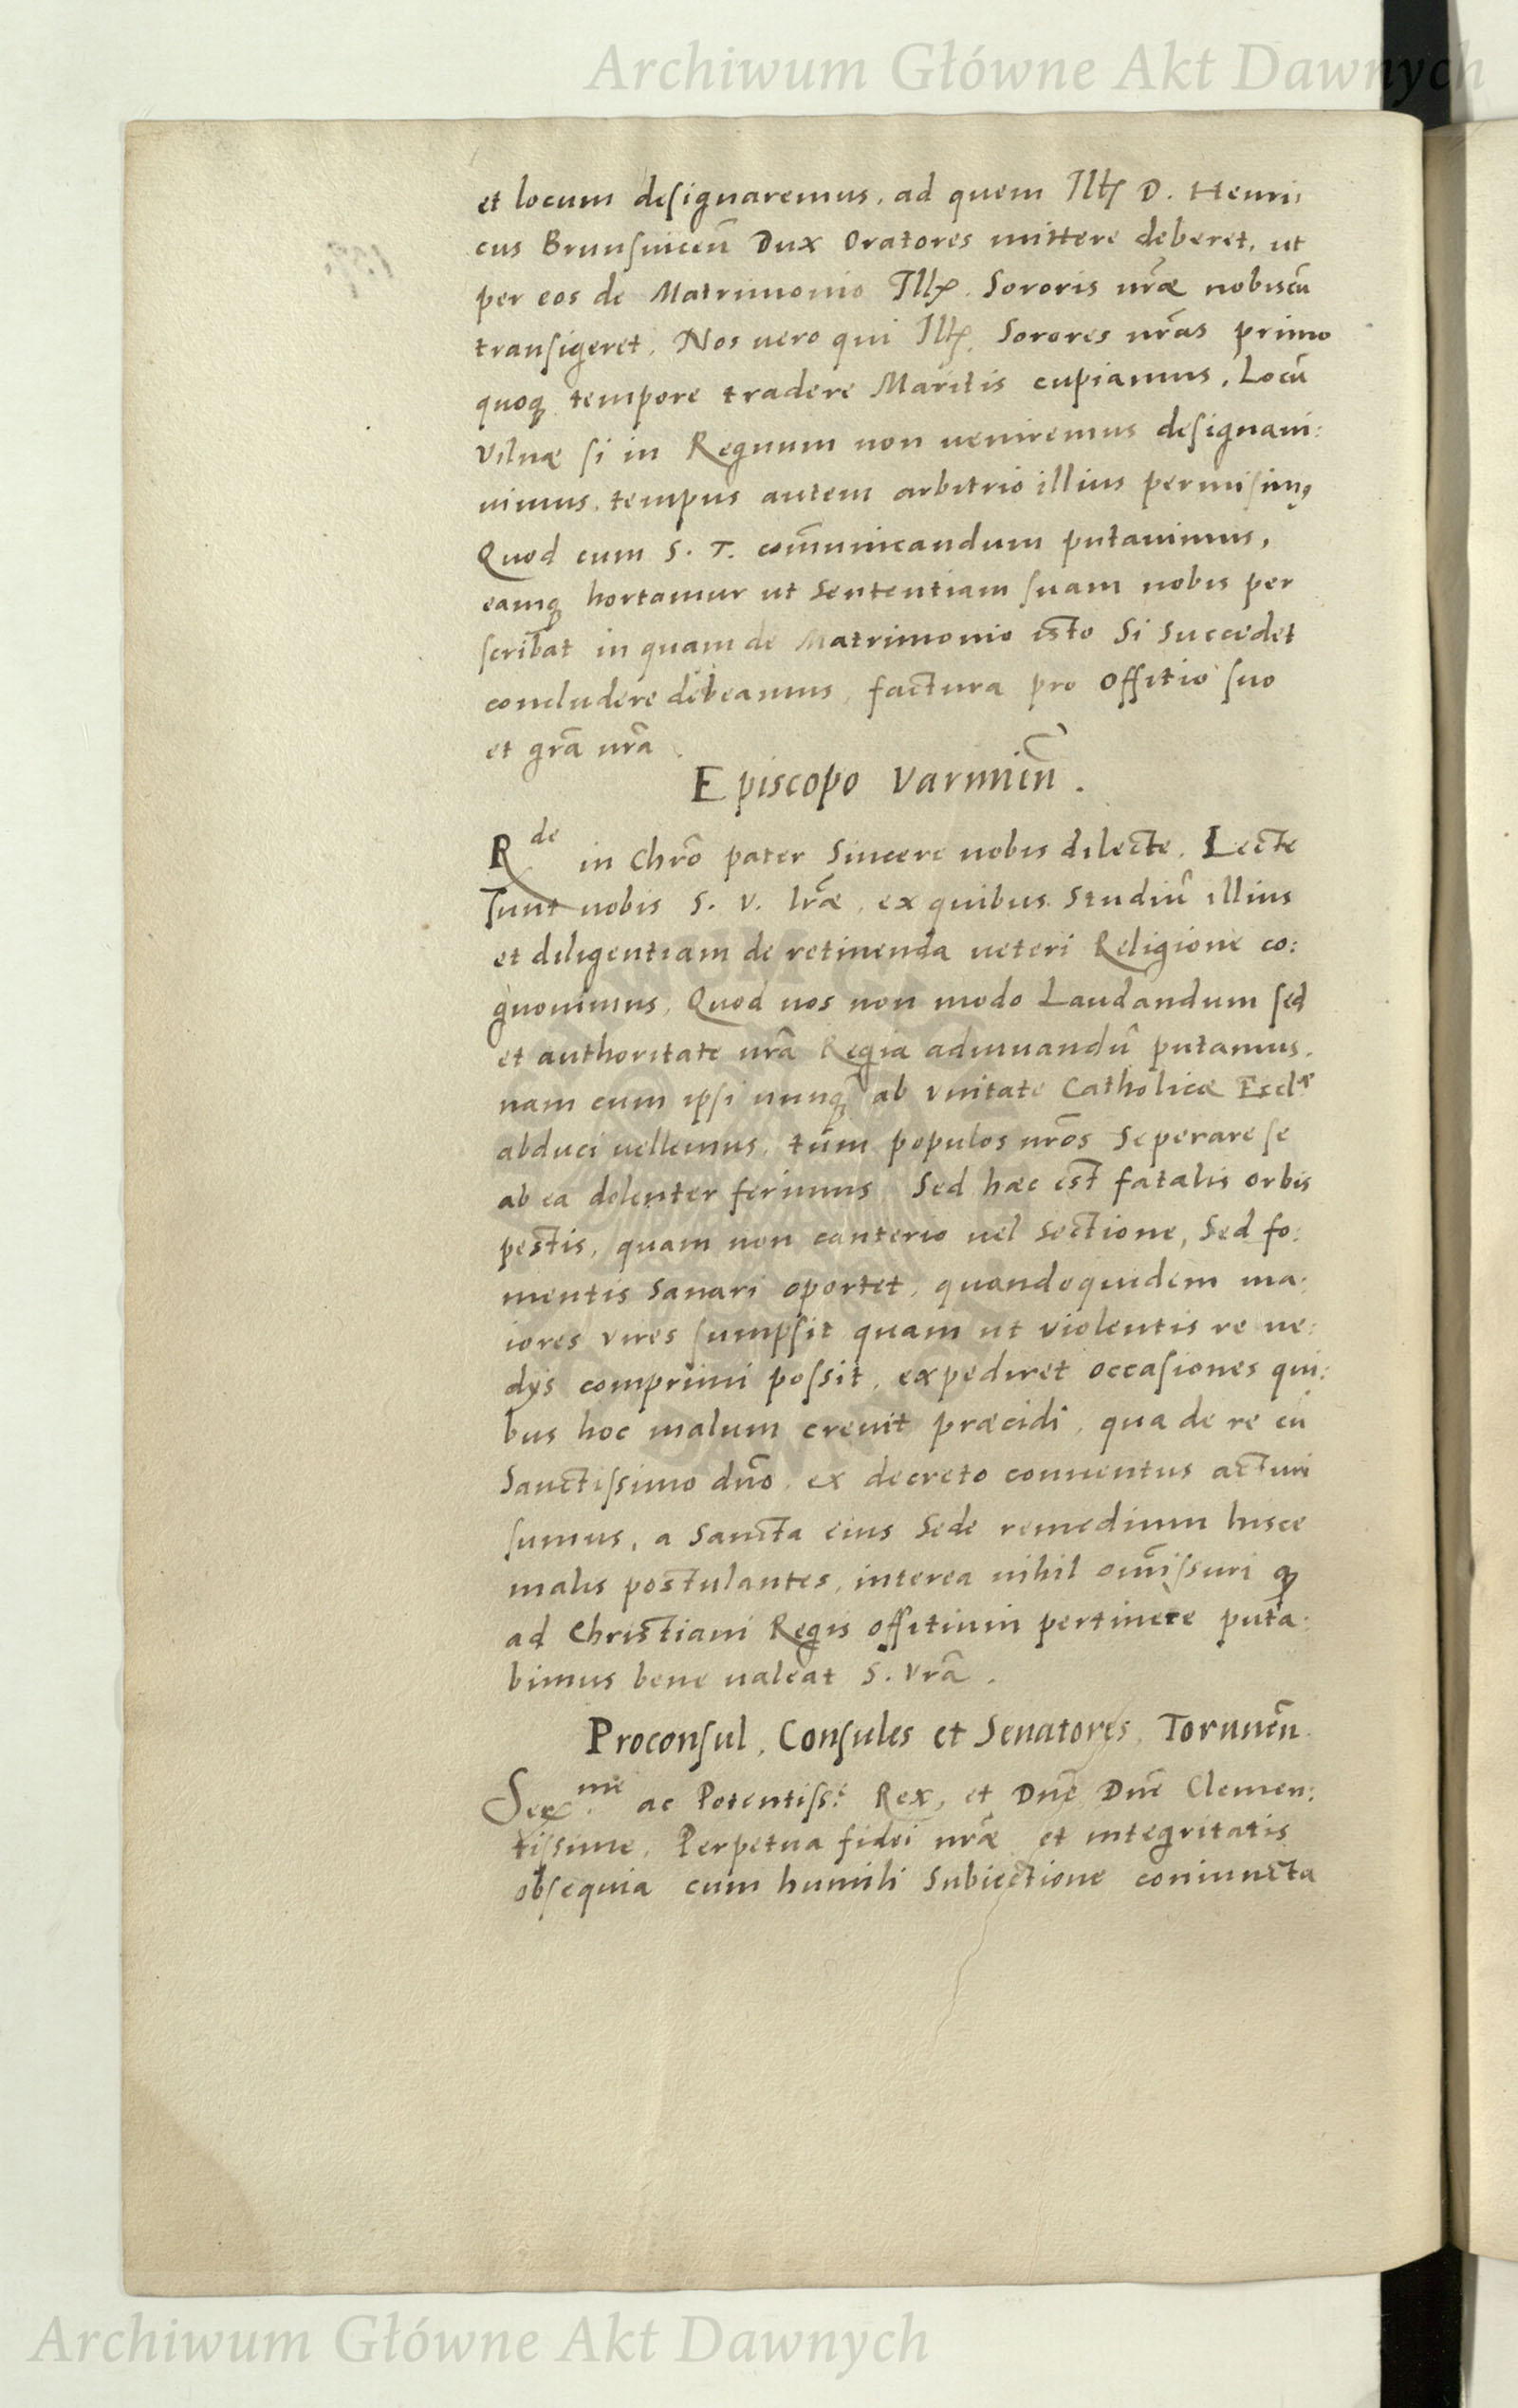 Archiwum Główne Akt Dawnych
et locum designaremus, ad quem Ill. D. Henri,
cus Brunsuicen̄ Dux Oratores mittere deberet, ut
per eos de Matrimonio Ill. Sororis nr̄æ nobiscū
transigeret. Nos uero qui Ill. Sorores nr̄as primo
quoq tempore tradere Maritis cupiamus, Locū
Vilnæ si in Regnum non ueniremus designaui:
uimus, tempus autem arbitrio illius permisim9
Quod cum S. T. com̄unicandum putauimus,
eamq hortamur ut Sententiam suam nobis per
scribat in quam de Matrimonio isto Si Succedet
concludere debeamus, factura pro Offitio suo
et gr̄a nr̄a
Episcopo Varmien̄.
Rde in Chrō pater Sincere nobis dilecte. Lecte
sunt nobis S. V. lr̄æ, ex quibus Studiū illius
et diligentiam de retinenda ueteri Religione co:
gnouimus, Quod nos non modo Laudandum sed
et authoritate nr̄a Regia adiuuandū putamus.
nam cum ipsi nunq ab Vnitate Catholicæ Eccl
abduci uellemus, tum populos nr̄os Seperare se
ab ea dolenter ferimus. Sed hæc est fatalis orbis
pestis, quam non cauterio uel Sectione, Sed fo:
mentis Sanari oportet, quandoquidem ma:
iores vires sumpsit quam ut violentis reme:
dys comprimi possit, expediret occasiones qui:
bus hoc malum creuit præcidi, qua de re cū
Sanctissimo dn̄o, ex decreto conuentus acturi
sumus, a Sancta eius Sede remedium hisce
malis postulantes, interea nihil om̄issuri q
ad Christiani Regis offitium pertinere puta:
bimus bene ualeat S. Vr̄a.
Proconsul, Consules et Senatores, Torunen̄.
Serme ac Potentiss: Rex, et Dn̄e Dn̄e Clemen:
tissime, Perpetua fidei nr̄æ et integritatis
obsequia cum humili Subiectione coniuncta
Archiwum Główne Akt Dawnych